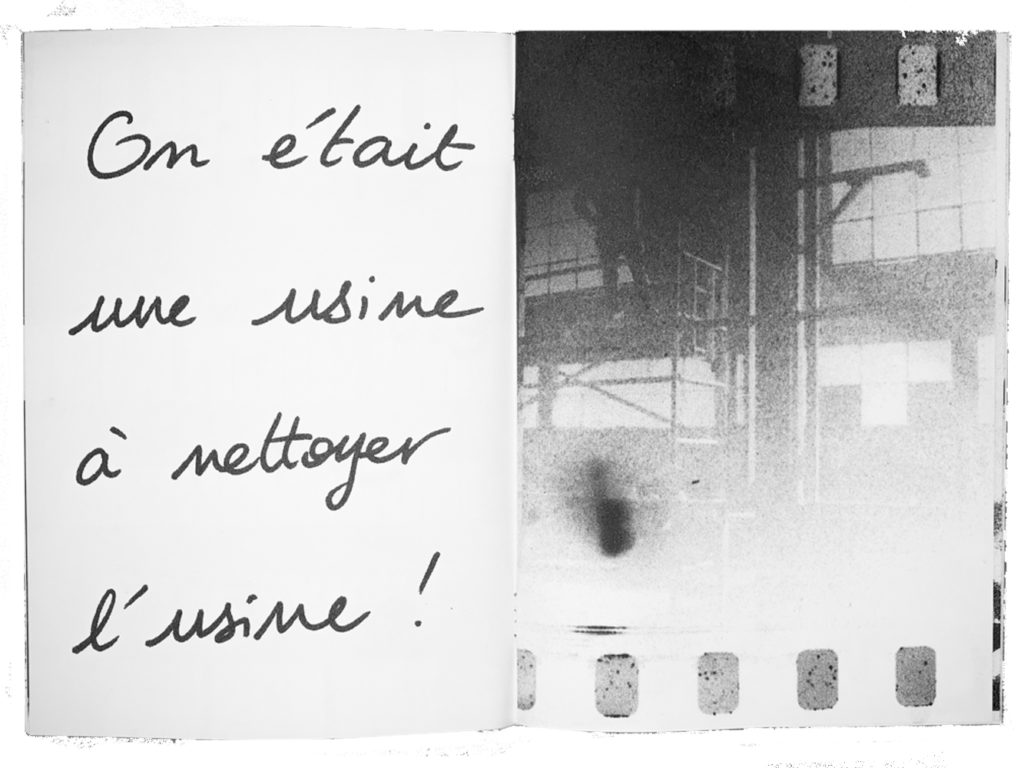 On était
une usine
à nettoyer
l'usine !